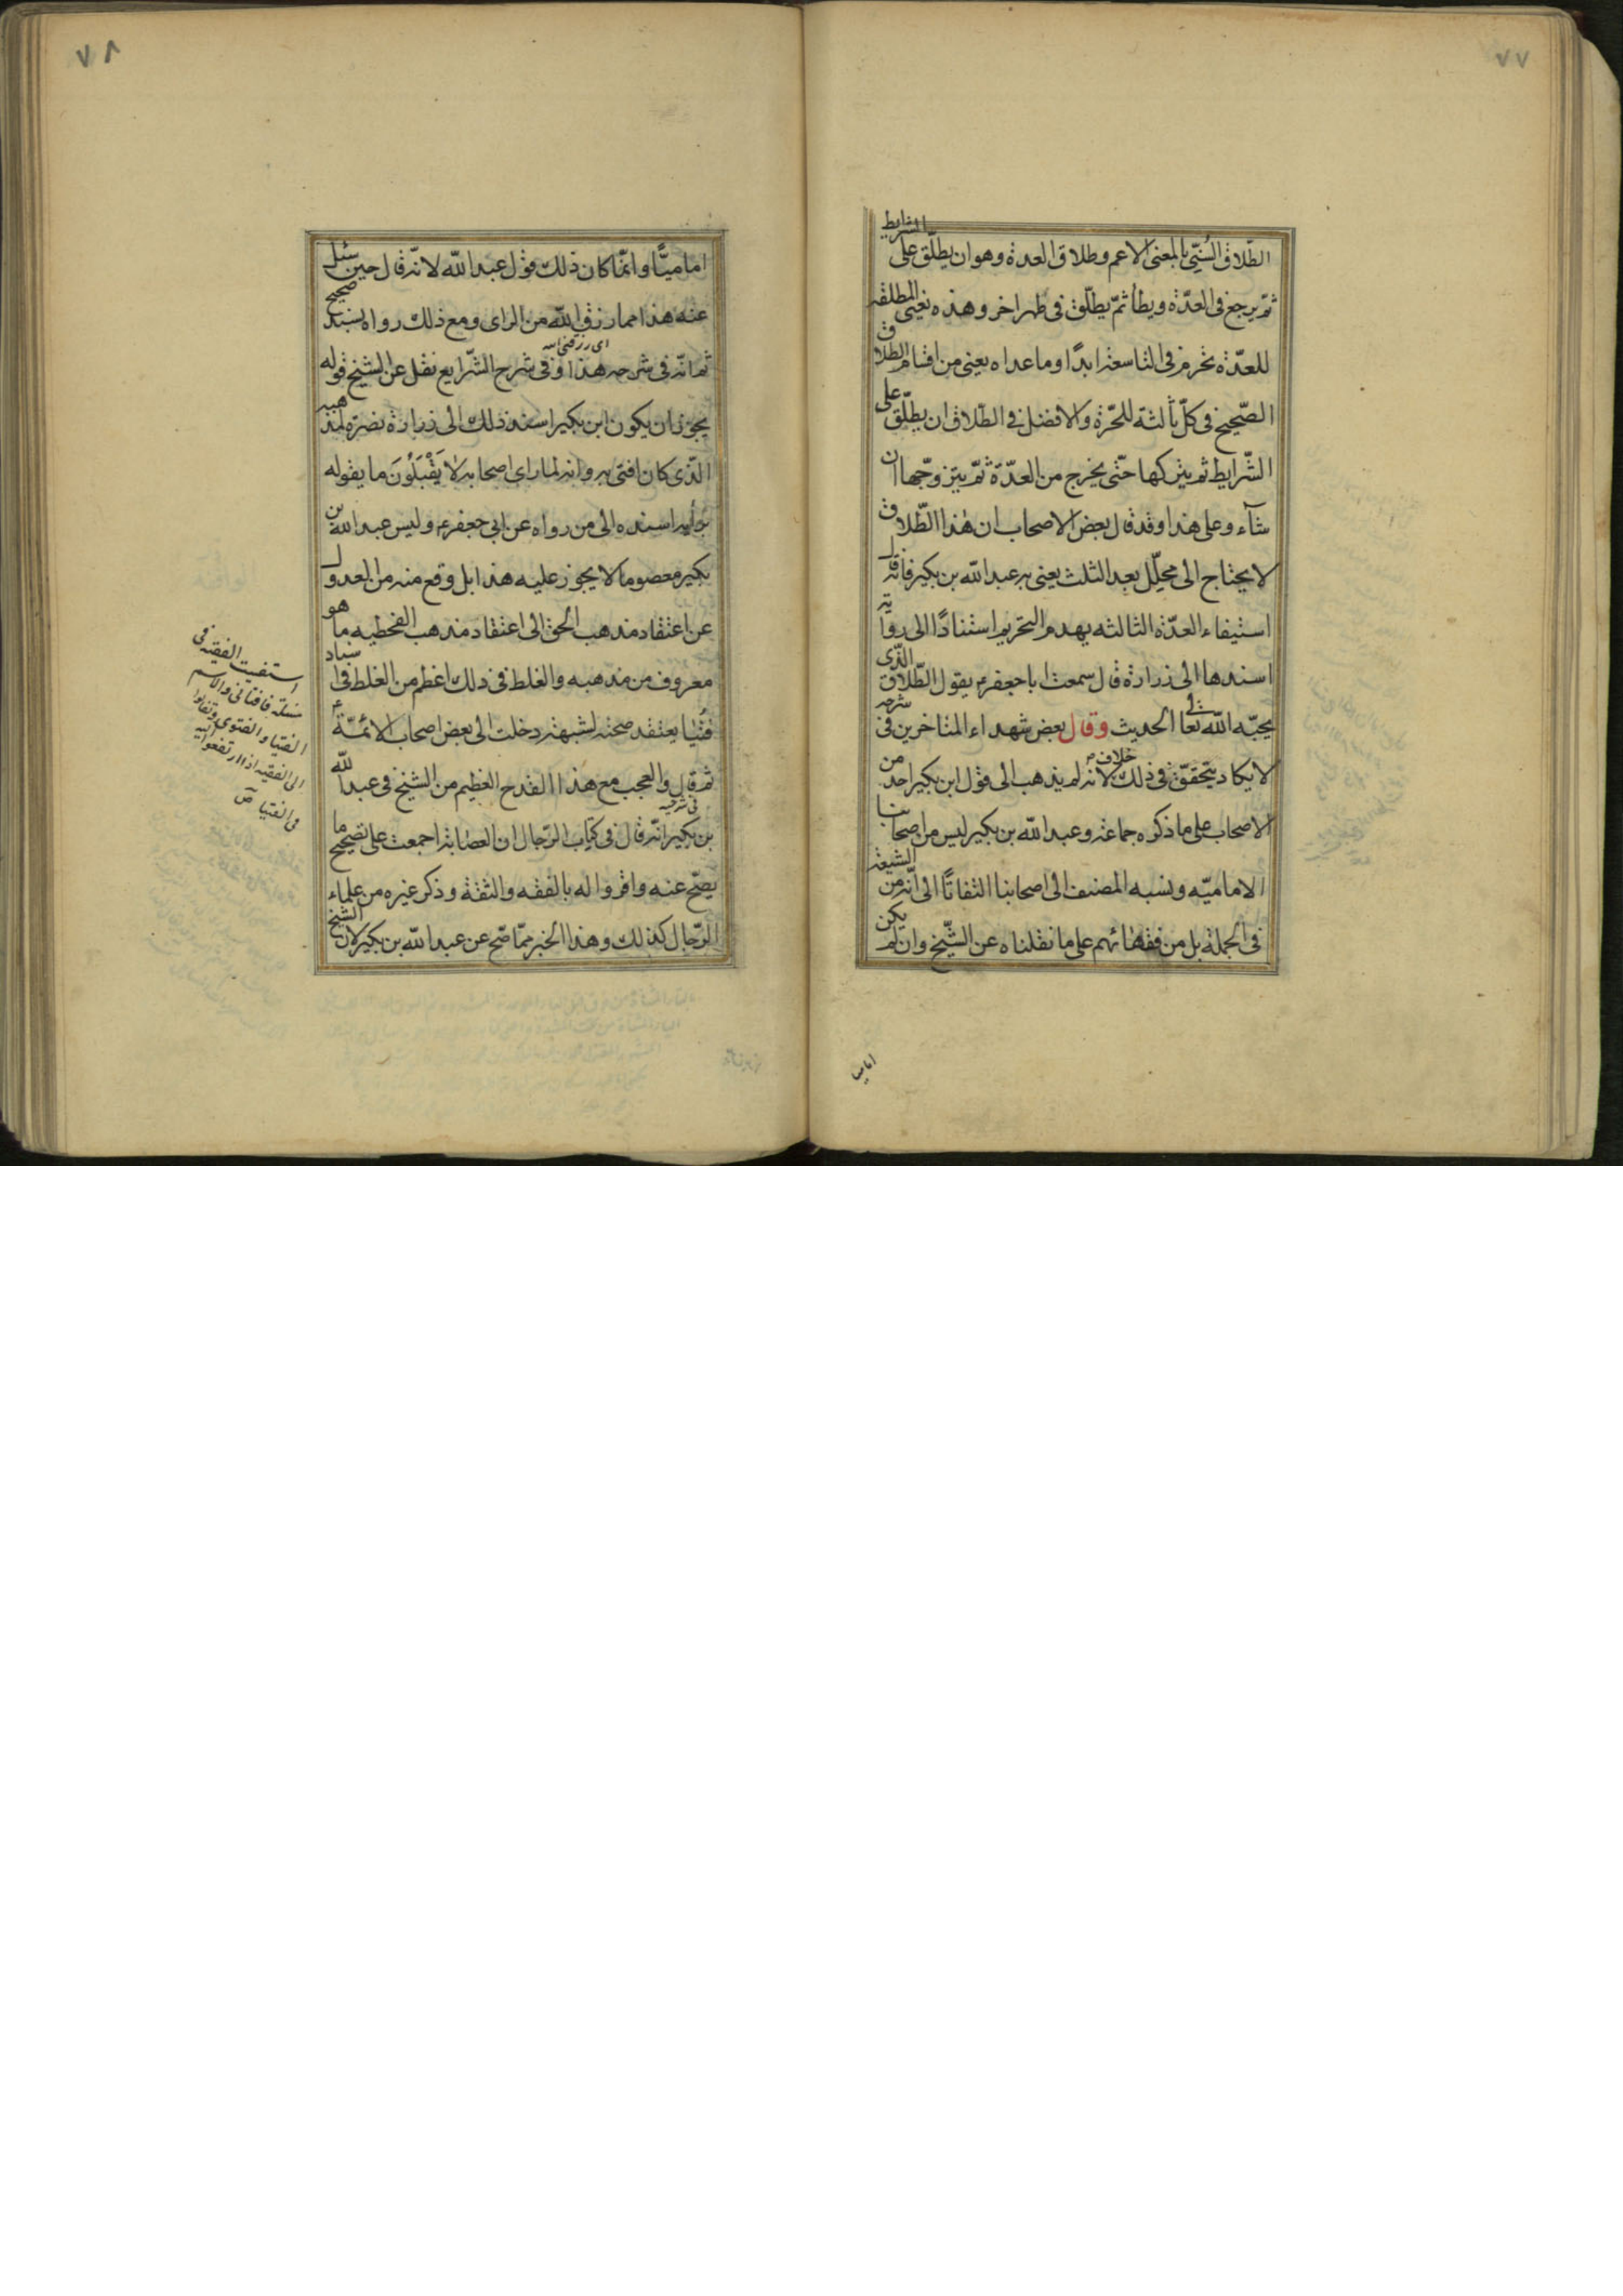 ٧٧
الطّلاق السُنّي بالمعنى الاعم وطلاق العدة وهو ان يطلّق على الشرايط
ثمّ يرجع فى العدّة ويطأ ثمّ يطلّق فى طهر اخر وهذه يعنى المطلقة
للعدّة تحرم فى التاسعة ابدًا وما عداه يعنى من اقسام الطلاق
الصّحيح فى كلّ ثالثة للحرّة والافضل فى الطّلاق ان يطلّق على
الشّرايط ثم يتركها حتّى يخرج من العدّة ثمّ يتزوّجها ان
شآء وعلى هذا وقد قال بعض الاصحاب ان هذا الطّلاق
لا يحتاج الى محلّل بعد الثلث يعنى به عبد الله بن بكير فانه قال
استيفاء العدّة الثالثه يهدم التحريم استنادًا الى رواية
اسندها الى زرارة قال سمعت اباجعفر ع يقول الطّلاق الذّى
يحبّه الله تعا الحديث وقال بعض شهداء المتاخرين فى شرحه
لا يكاد يتحقّق فى ذلك خلاف لانه لم يذهب الى قول ابن بكير احد من
الاصحاب على ما ذكره جماعة وعبد الله بن بكير ليس من اصحابنا
الاماميّه ونسبه المصنف الى اصحابنا التفاتًا الى انّه من الشيعة
فى الجملة بل من فقهائهم على ما نقلناه عن الشّيخ وان لم يكن
اماميا
٧٨
اماميًّا وانمّا كان ذلك قول عبد الله لانّه قال حين سئل
عنه هذا مما رزق الله من الراى ومع ذلك رواه بسند صحيح
اى رزقنى الله
ثم انّه فى شرحه هذا وفى شرح الشّرايع نقل عن الشيخ قوله
يجوز ان يكون ابن بكير اسند ذلك الى زرارة نصرة لمذهبه
الذّى كان افتى به وانه لما راى اصحابه لا يَقْبَلُونَ ما يقوله
برأيه اسنده الى من رواه عن ابى جعفر ع وليس عبد الله بن
بكير معصوما لا يجوز عليه هذا بل وقع منه من العدول
عن اعتقاد مذهب الحق الى اعتقاد مذهب الفحطيه ما هو
معروف من مذهبه والغلط فى ذلك اعظم من الغلط فى اسناد
فُتْيَا يعتقد صحته لشبهة دخلت الى بعض اصحاب الائمّة ع
ثم قال والعجب مع هذا القدح العظيم من الشيخ فى عبد الله
فى شرحيه
بن بكير انّه قال فى كتاب الرّجال ان العصابة اجمعت على تصحيح ما
يصّح عنه واقروا له بالفقه والثقة وذكر غيره من علماء
الرّجال كذلك وهذا الخبر ممّا صّح عن عبد الله بن بكير لان الشيخ
استفتيت الفقيه فى
مسئلة فافتانى والاسم
الفتيا والفتوى وتفاتوا
الى الفقيه اذا ارتفعوا اليه
فى الفتيا ص